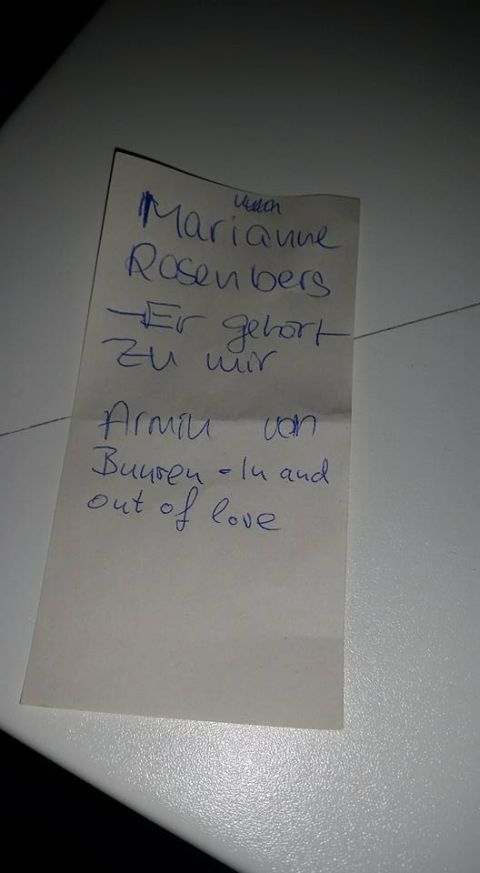 Marianne
Rosenberg
-Er gehört
zu mir
Armin van
Buuren - In and
out of love